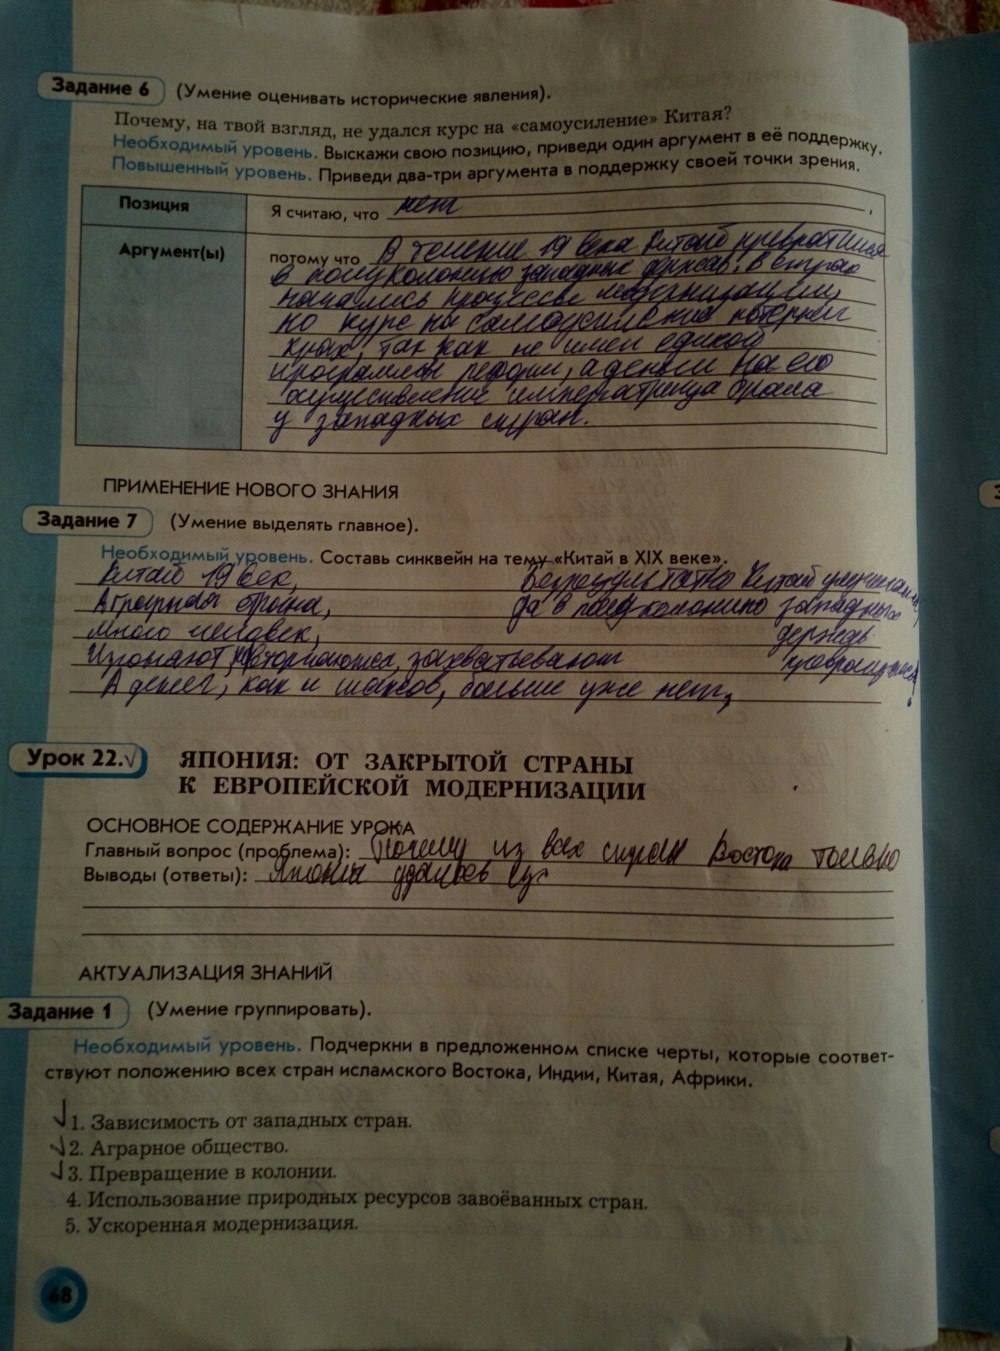 Задание 6 (Умение оценивать исторические явления).
Почему, на твой взгляд, не удался курс на «самоусиление» Китая?
Необходимый уровень. Выскажи свою позицию, приведи один аргумент в её поддержку.
Повышенный уровень. Приведи два-три аргумента в поддержку своей точки зрения.
Позиция
Я считаю, что нет ,
Аргумент(ы)
потому что В течение 19 века Китай превратился
в полуколонию западных держав. В стране
начались процессы модернизации,
но курс на самоусиление потерпел
крах, так как не имел единой
программы реформ, а деньги на его
осуществление императрица брала
у западных стран.
ПРИМЕНЕНИЕ НОВОГО ЗНАНИЯ
Задание 7 (Умение выделять главное).
Необходимый уровень. Составь синквейн на тему «Китай в XIX веке».
Китай 19 век,
Аграрная страна,
Много человек,
Изгоняют, вторгаются, захватывают
А денег, как и шансов, больше уже нет,
Безрезультатно Китай
да в полуколонию западных
держав
превратился!
Урок 22.√ ЯПОНИЯ: ОТ ЗАКРЫТОЙ СТРАНЫ
К ЕВРОПЕЙСКОЙ МОДЕРНИЗАЦИИ
ОСНОВНОЕ СОДЕРЖАНИЕ УРОКА
Главный вопрос (проблема): Почему из всех стран Востока только
Выводы (ответы): Японии удалось
АКТУАЛИЗАЦИЯ ЗНАНИЙ
Задание 1 (Умение группировать).
Необходимый уровень. Подчеркни в предложенном списке черты, которые соответ-
ствуют положению всех стран исламского Востока, Индии, Китая, Африки.
√1. Зависимость от западных стран.
√2. Аграрное общество.
√3. Превращение в колонии.
4. Использование природных ресурсов завоёванных стран.
5. Ускоренная модернизация.
68